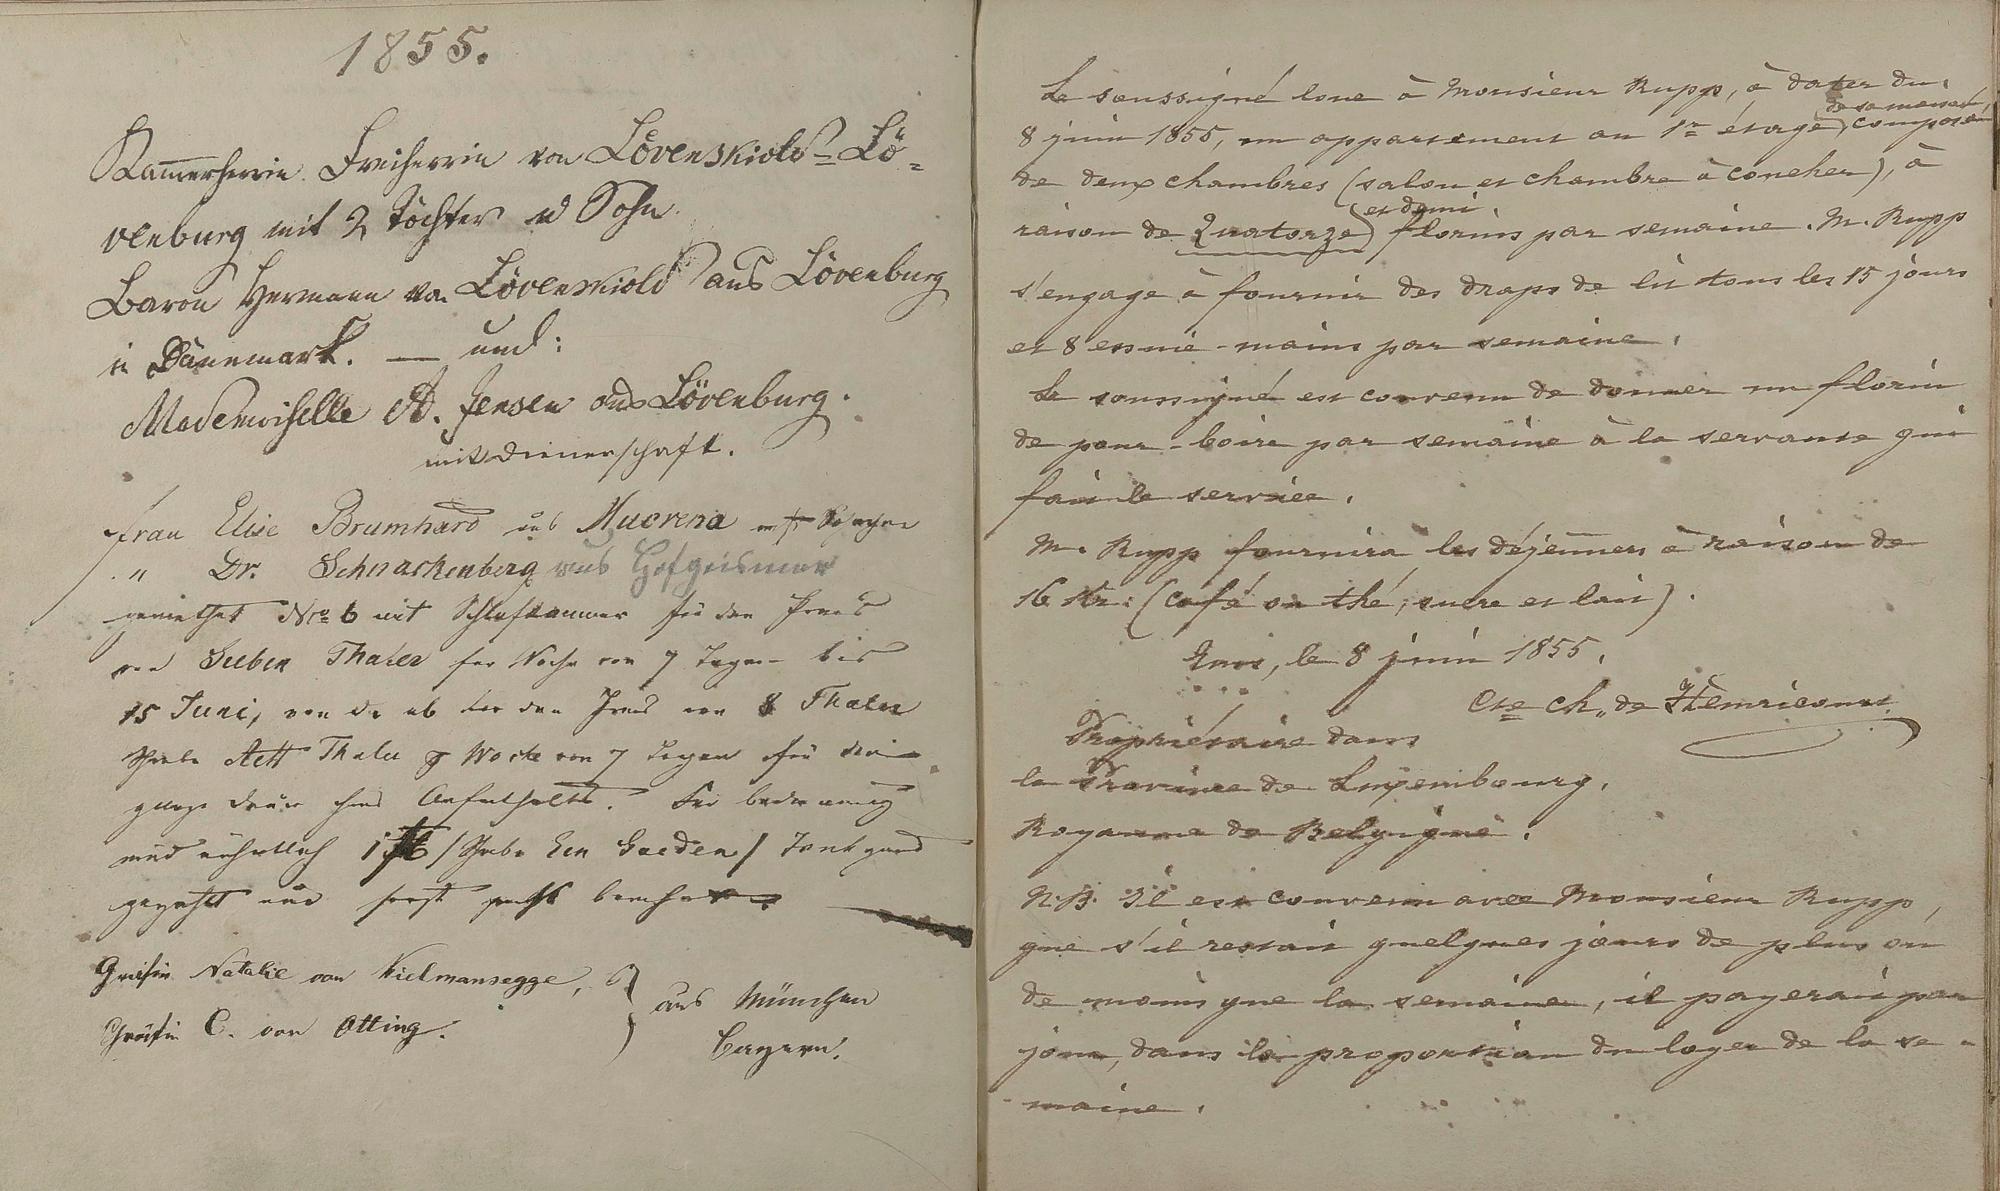 1855.
Kammerherrin Freiherrin von Lövenskiold-Lö-
venburg mit 2 Töchter u Sohn.
Baron Hermann von Lövenskiold aus Lövenburg
in Dänemark. — und:
Mademoiselle A. Jensen aus Lövenburg.
mit Dienerschaft.
Frau Elise Brumhard aus
" Dr. Schnackenberg aus Hofgeismar
gemiethet Nro 6 mit Schlafkammer für den Preis
von Sieben Thaler per Woche von 7 Tagen bis
15 Juni, von da ab für den Preis von 8 Thaler
schreibe Acht Thaler Woche von 7 Tagen für die
ganze Dauer ihres Aufenthalts. Für Bedienung
wird wöchentlich 1 f / schreibe Ein Gulden /
gezahlt und sonst nichts berechnet
Gräfin Natalie von Kielmansegge,
Gräfin C. von Otting.
aus München
Bayern.
Le soussigné loue à Monsieur Rupp, à dater du
8 juin 1855, un appartement au 1r étage de sa maison, composé
de deux chambres (salon et chambre à coucher), à
raison de Quatorze et demi florins par semaine. M. Rupp
s'engage à fournir des draps de lit tous les 15 jours
et 8 essuie-mains par semaine.
Le soussigné est convenu de donner un florin
de pour-boire par semaine à la servante qui
fait le service.
M. Rupp fournira les déjeuners à raison de
16 Kr: (café ou thé, sucre et lait).
Ems, le 8 juin 1855.
Cte Ch. de Hemricourt
Propriétaire dans
la Province de Luxembourg.
Royaume de Belgique.
N.B. Il est convenu avec Monsieur Rupp,
que s'il restait quelques jours de plus ou
de moins que la semaine, il payerait par
jour, dans la proportion du loyer de la se-
maine.